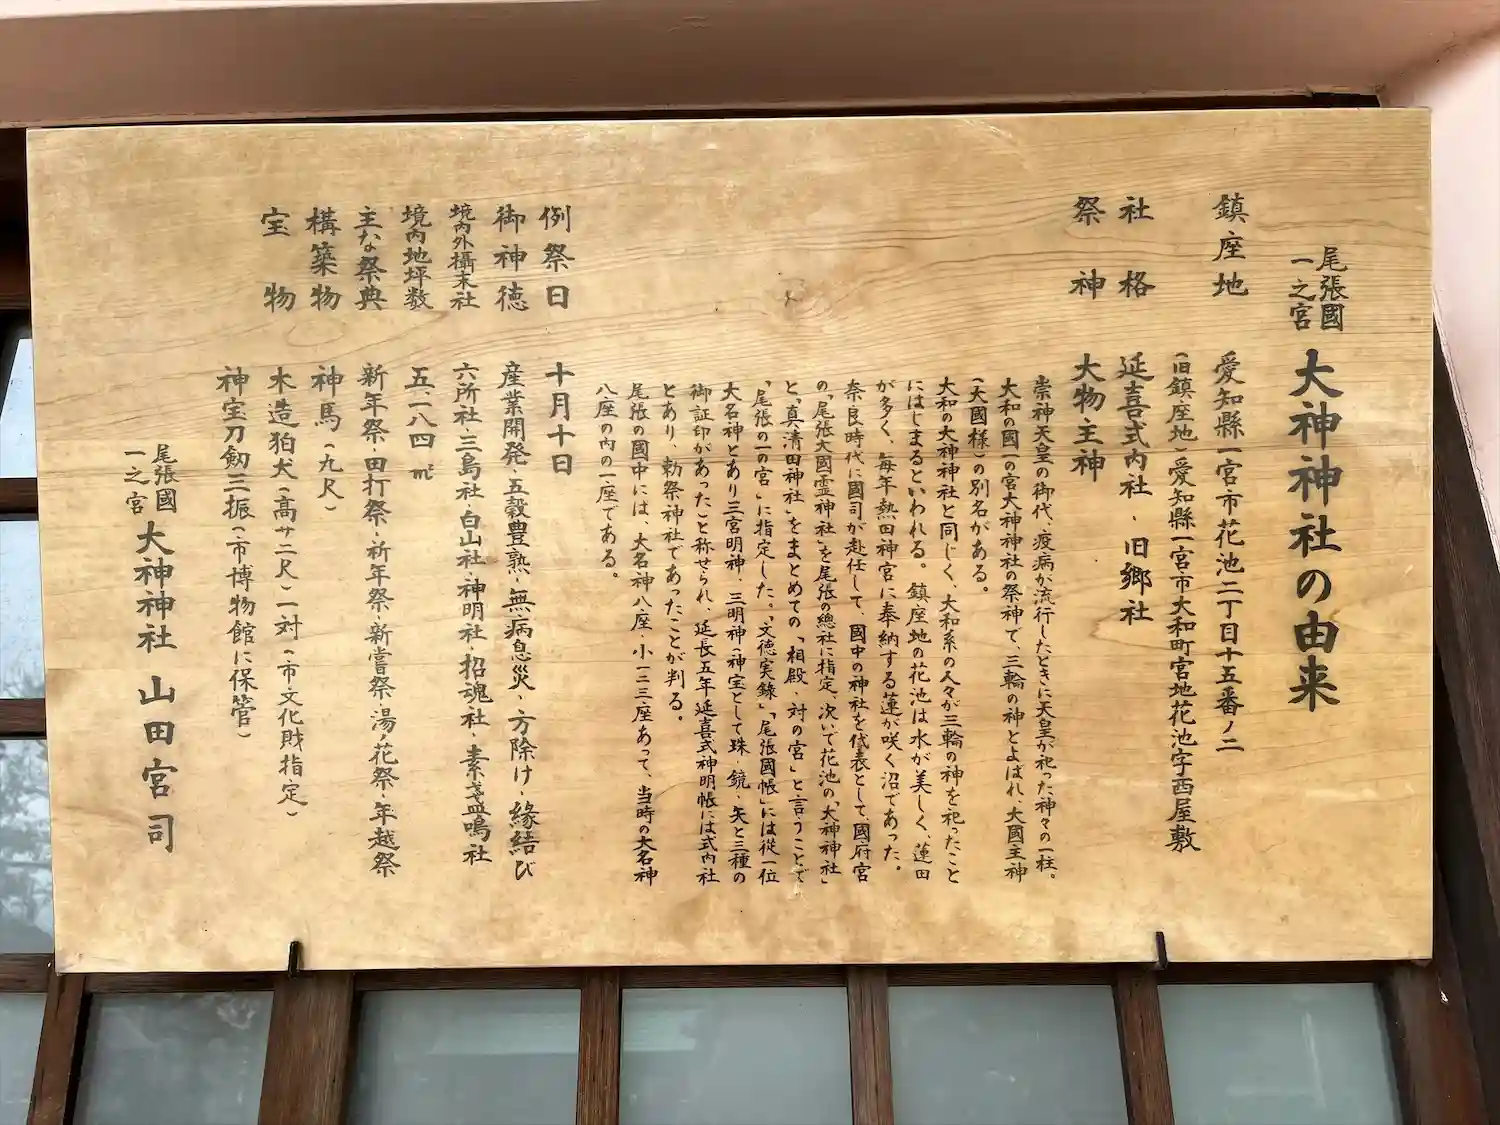 尾張國
一之宮
大神神社の由来
鎮座地 愛知縣一宮市花池二丁目十五番ノ二
(旧鎮座地)愛知縣一宮市大和町宮地花池字西屋敷
社格 延喜式内社・旧郷社
祭神 大物主神
崇神天皇の御代、疫病が流行したときに天皇が祀った神々の一柱。
大和の國一の宮大神神社の祭神で、三輪の神とよばれ、大國主神
(大國様)の別名がある。
大和の大神神社と同じく、大和系の人々が三輪の神を祀ったこと
にはじまるといわれる。鎮座地の花池は水が美しく、蓮田
が多く、毎年熱田神宮に奉納する蓮が咲く沼であった。
奈良時代に國司が赴任して、國中の神社を代表として、國府宮
の「尾張大國霊神社」を尾張の總社に指定、次いで花池の「大神神社」
と「真清田神社」をまとめての「相殿、対の宮」と言うことで
「尾張の一の宮」に指定した。「文徳実錄」「尾張國帳」には従一位
大名神とあり三宮明神、三明神(神宝として珠・鏡・矢と三種の
御証印があった)と称せられ、延長五年延喜式神明帳には式内社
とあり、勅祭神社であったことが判る。
尾張の國中には、大名神八座・小一二三座あって、当時の大名神
八座の内の一座である。
例祭日 十月十日
御神徳 産業開発・五穀豊熟・無病息災・方除け・縁結び
境内外攝末社 六所社・三島社・白山社・神明社・招魂社・素盞鳴社
境内地坪数 五、一八四㎡
主な祭典 新年祭・田打祭・祈年祭・新嘗祭・湯ノ花祭・年越祭
構築物 神馬(九尺)
木造狛犬(高サ二尺)一対(市文化財指定)
宝物 神宝刀劔三振(市博物館に保管)
尾張國
一之宮
大神神社 山田宮司